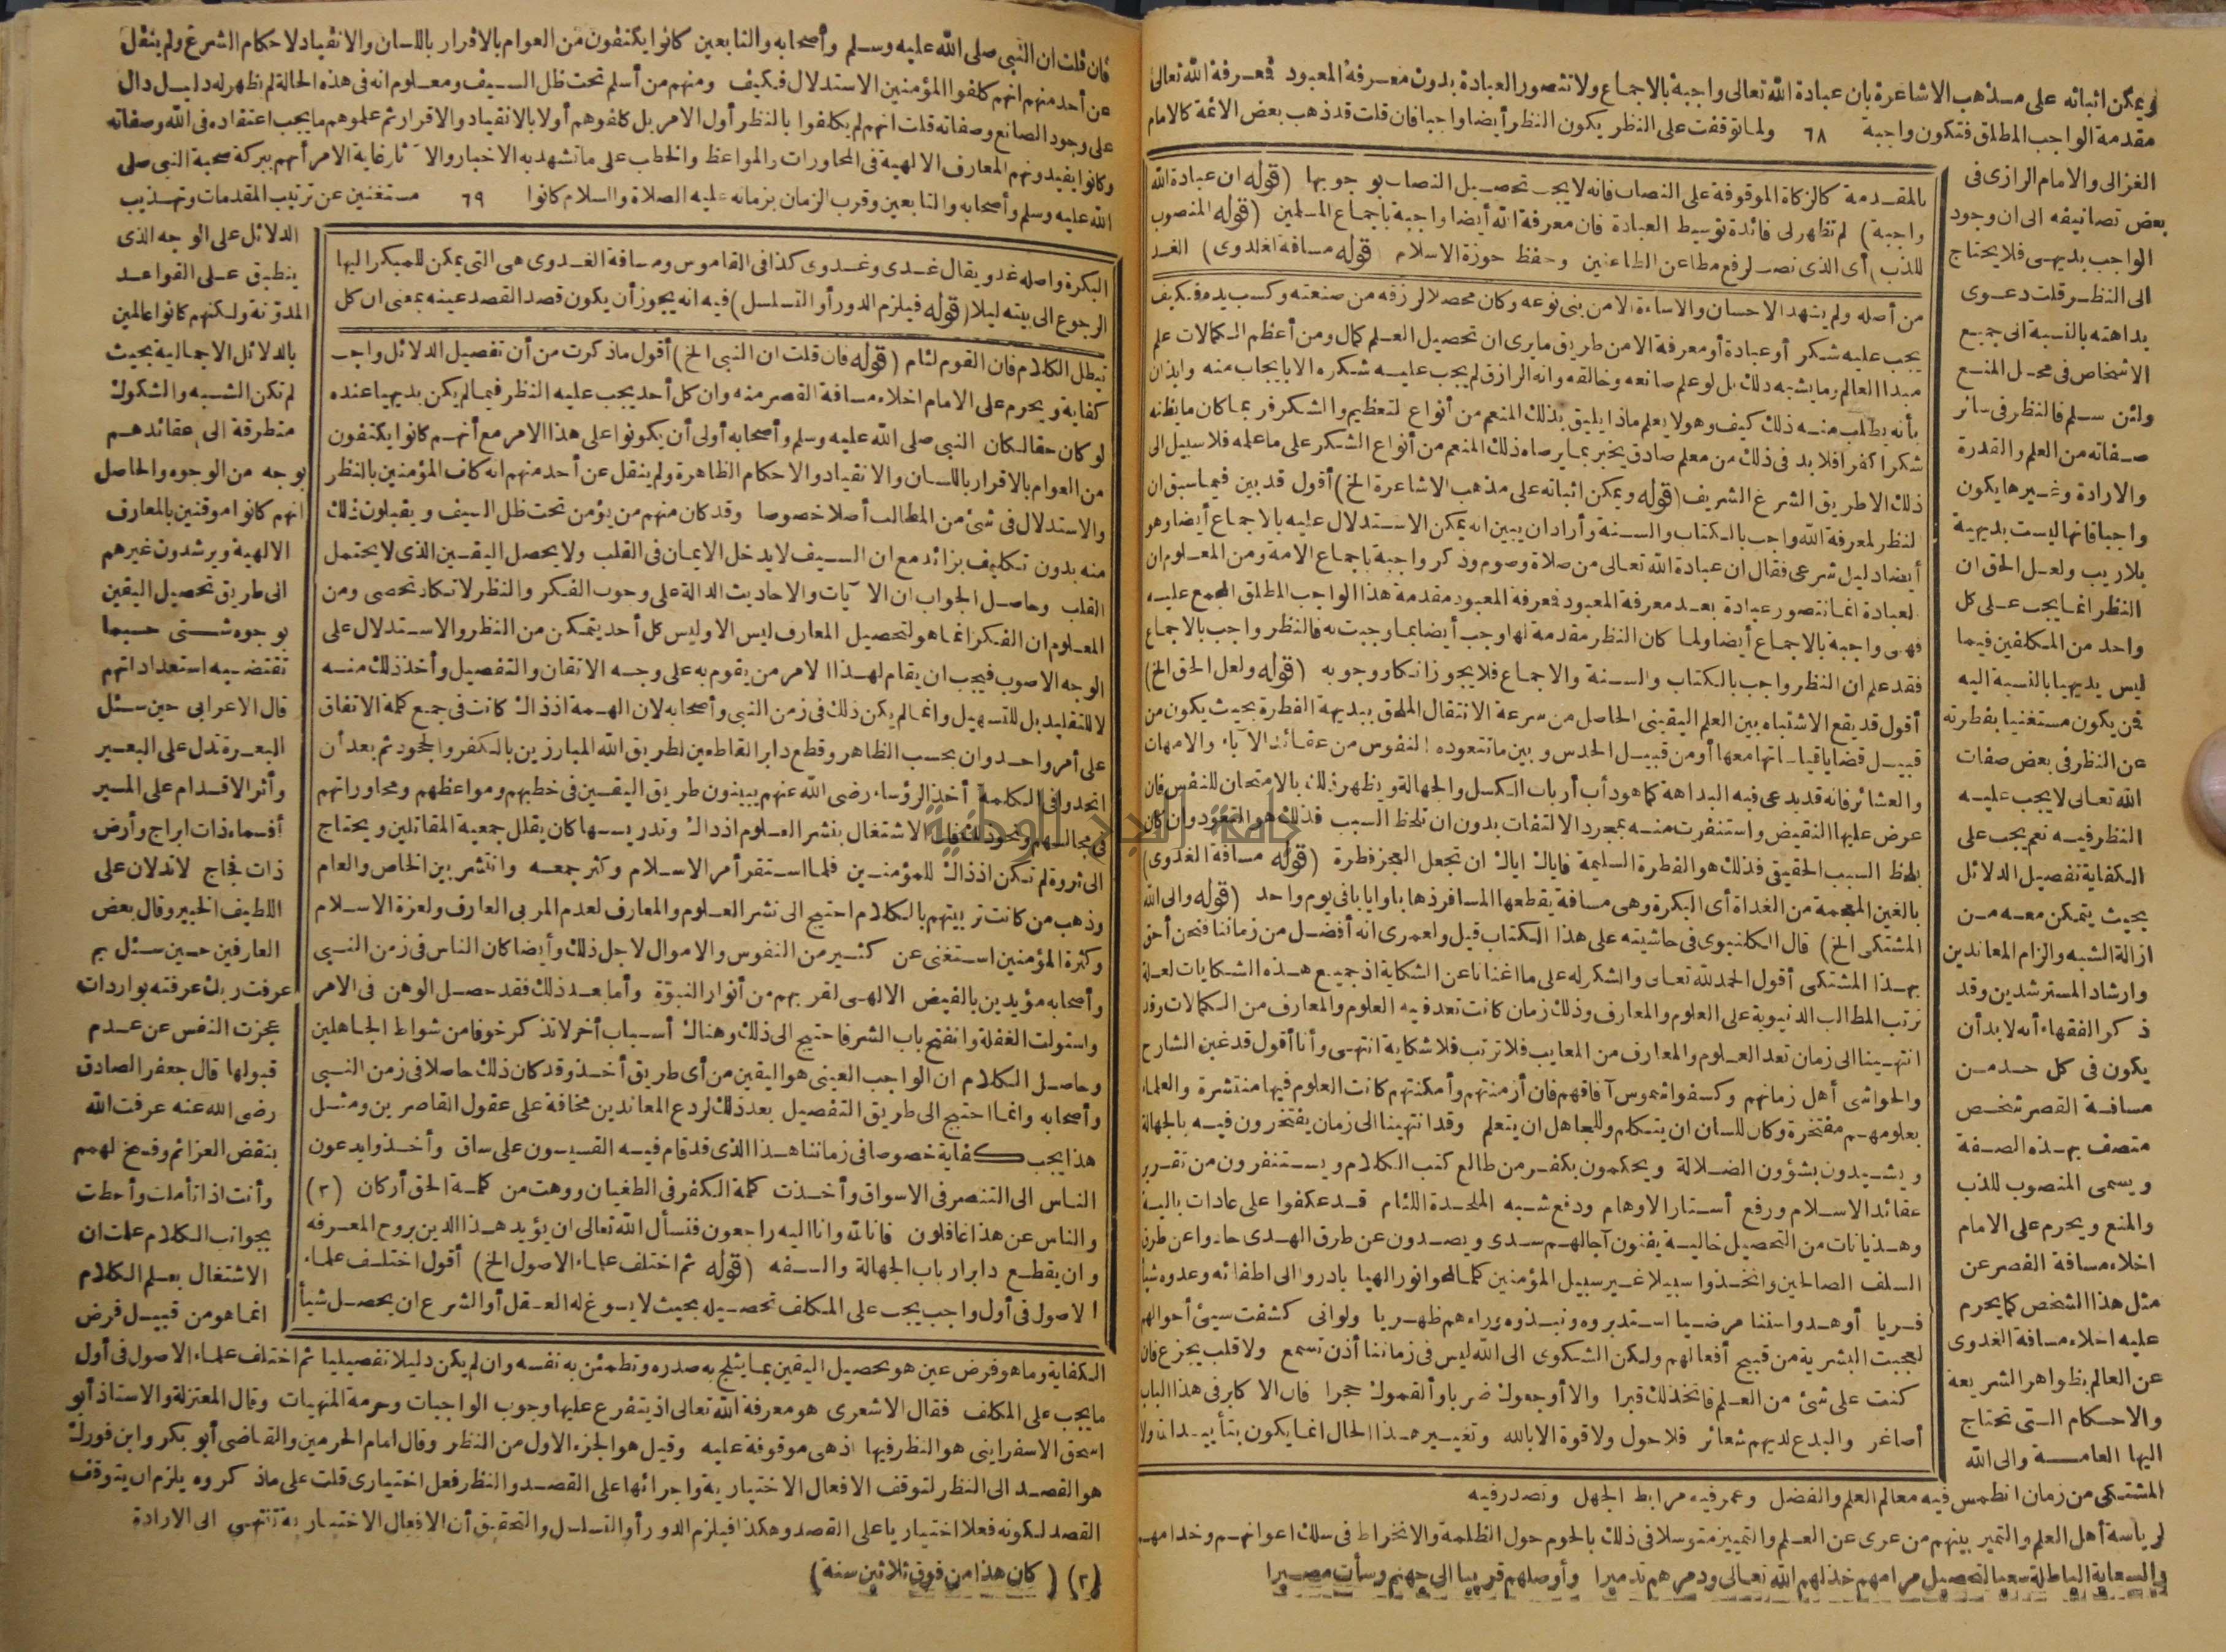 ويمكن اثباته على مذهب الاشاعرة بان عبادة الله تعالى واجبة بالاجماع ولا تتصور العبادة بدون معرفة المعبود فمعرفة الله تعالى
مقدمة الواجب المطلق فتكون واجبة ٦٨ ولما توقفت على النظر يكون النظر أيضا واجبا فان قلت قد ذهب بعض الائمة كالامام
الغزالى والامام الرازى فى
بعض تصانيفه الى ان وجود
الواجب بديهى فلا يحتاج
الى النظر قلت دعوى
بداهته بالنسبة الى جميع
الاشخاص فى محل المنع
ولئن سلم فالنظر فى سائر
صفاته من العلم والقدرة
والارادة وغيرها يكون
واجبا فانها ليست بديهية
بلا ريب ولعل الحق ان
النظر انما يجب على كل
واحد من المكلفين فيما
ليس بديهيا بالنسبة اليه
فمن يكون مستغنيا بفطرته
عن النظر فى بعض صفات
الله تعالى لا يجب عليه
النظر فيه نعم يجب على
الكفاية تفصيل الدلائل
بحيث يتمكن معه من
ازالة الشبه والزام المعاندين
وارشاد المسترشدين وقد
ذكر الفقهاء أنه لا بد أن
يكون فى كل حد من
مسافة القصر شخص
متصف بهذه الصفة
ويسمى المنصوب للذب
والمنع ويحرم على الامام
اخلاء مسافة القصر عن
مثل هذا الشخص كما يحرم
عليه اخلاء مسافة الغدوى
عن العالم بظواهر الشريعة
والاحكام التى تحتاج
اليها العامة والى الله
المشتكى من زمان انطمس فيه معالم العلم والفضل وعمر فيه مرابط الجهل وتصدر فيه
لرياسة أهل العلم والتميز بينهم من عرى عن العلم والتمييز متوسلا فى ذلك بالحوم حول الظلمة والانخراط فى سلك اعوانهم وخدامهم
والسعاية الباطلة سعيا لتحصيل مرامهم خذلهم الله تعالى ودمرهم تدميرا وأوصلهم قريبا الى جهنم وساءت مصيرا
بالمقدمة كالزكاة الموقوفة على النصاب فانه لا يجب تحصيل النصاب بوجوبها (قوله ان عبادة الله
واجبة) لم تظهر لى فائدة توسيط العبادة فان معرفة الله أيضا واجبة باجماع المسلمين (قوله المنصوب
للذب) أى الذى نصب لرفع مطاعن الطاعنين وحفظ حوزة الاسلام (قوله مسافة الغدوى) الغد
من أصله ولم يشهد الاحسان والاساءة الا من بنى نوعه وكان محصلا لرزقه من صنعته وكسب يده فكيف
يجب عليه شكر أو عبادة أو معرفة الا من طريق ما يرى ان تحصيل العلم كمال ومن أعظم الكمالات علم
مبدا العالم وما يشبه ذلك بل لو علم صانعه وخالقه وانه الرازق لم يجب عليه شكره الا بايجاب منه وايذان
بأنه يطلب منه ذلك كيف وهو لا يعلم ماذا يليق بذلك المنعم من أنواع التعظيم والشكر فربما كان ما يظنه
شكرا كفرا فلا بد فى ذلك من معلم صادق يخبر بما يرضاه ذلك المنعم من أنواع الشكر على ما علمه فلا سبيل الى
ذلك الا طريق الشرع الشريف (قوله ويمكن اثباته على مذهب الاشاعرة الخ) أقول قد بين فيما سبق ان
النظر لمعرفة الله واجب بالكتاب والسنة وأراد ان يبين انه يمكن الاستدلال عليه بالاجماع أيضا وهو
أيضا دليل شرعى فقال ان عبادة الله تعالى من صلاة وصوم وذكر واجبة باجماع الامة ومن المعلوم ان
العبادة انما تتصور عبادة بعد معرفة المعبود فمعرفة المعبود مقدمة هذا الواجب المطلق المجمع عليه
فهى واجبة بالاجماع أيضا ولما كان النظر مقدمة لها وجب أيضا بما وجبت به فالنظر واجب بالاجماع
فقد علم ان النظر واجب بالكتاب والسنة والاجماع فلا يجوز انكار وجوبه (قوله ولعل الحق الخ)
أقول قد يقع الاشتباه بين العلم اليقينى الحاصل من سرعة الانتقال الملحق ببديهة الفطرة بحيث يكون من
قبيل قضايا قياساتها معها أو من قبيل الحدس وبين ما تتعوده النفوس من عقائد الآباء والامهات
والعشائر فانه قد يدعى فيه البداهة كما هو دأب أرباب الكسل والجهالة ويظهر ذلك بالامتحان للنفس فان
عرض عليها النقيض واستنفرت منه بمجرد الالتفات بدون ان تلحظ السبب فذلك هو التعود وان كان
بلحظ السبب الحقيقى فذلك هو الفطرة السليمة فاياك اياك ان تجعل العجز فطرة (قوله مسافة الغدوى)
بالغين المعجمة من الغداة أى البكرة وهى مسافة يقطعها المسافر ذهابا وايابا فى يوم واحد (قوله والى الله
المشتكى الخ) قال الكلنبوى فى حاشيته على هذا الكتاب قيل ولعمرى انه أفضل من زماننا فنحن أحق
بهذا المشتكى أقول الحمد لله تعالى والشكر له على ما اغنانا عن الشكاية اذ جميع هذه الشكايات لعلة
ترتب المطالب الدنيوية على العلوم والمعارف وذلك زمان كانت تعد فيه العلوم والمعارف من الكمالات وقد
انتهينا الى زمان تعد العلوم والمعارف من المعايب فلا ترتب فلا شكاية انتهى وأنا أقول قد غبن الشارح
والحواشى أهل زمانهم وكسفوا شموس آفاقهم فان أزمنتهم وأمكنتهم كانت العلوم فيها منتشرة والعلماء
بعلومهم مفتخرة وكان للسان ان يتكلم وللجاهل ان يتعلم وقد انتهينا الى زمان يفتخرون فيه بالجهالة
ويشيدون بشؤون الضلالة ويحكمون بكفر من طالع كتب الكلام ويستنفرون من تقرير
عقائد الاسلام ورفع أستار الاوهام ودفع شبه الملحدة اللئام قد عكفوا على عادات بالية
وهذيانات من التحصيل خالية يفنون آجالهم سدى ويصدون عن طرق الهدى حادوا عن طرق
السلف الصالحين واتخذوا سبيلا غير سبيل المؤمنين كلما لمحوا نورا الهيا بادروا الى اطفائه وعدوه شيأ
فريا أو هدوا سننا مرضيا استدبروه ونبذوه وراءهم ظهريا ولو انى كشفت سيئ أحوالهم
لعجبت البشرية من قبيح أفعالهم ولكن الشكوى الى الله ليس فى زماننا أذن تسمع ولا قلب يجزع فان
كنت على شئ من العلم فاتخذ لك قبرا والا أوجعوك ضربا وألقموك حجرا فان الاكابر فى هذا الباب
أصاغر والبدع لديهم شعائر فلا حول ولا قوة الا بالله وتغيير هذا الحال انما يكون بتأييد الله ولا
فان قلت ان النبى صلى الله عليه وسلم وأصحابه والتابعين كانوا يكتفون من العوام بالاقرار باللسان والانقياد لاحكام الشرع ولم ينقل
عن أحد منهم انهم كلفوا المؤمنين الاستدلال فكيف ومنهم من أسلم تحت ظل السيف ومعلوم انه فى هذه الحالة لم يظهر له دليل دال
على وجود الصانع وصفاته قلت انهم لم يكلفوا بالنظر أول الامر بل كلفوهم أولا بالانقياد والاقرار ثم علموهم ما يجب اعتقاده فى الله وصفاته
وكانوا يفيدونهم المعارف الالهية فى المحاورات والمواعظ والخطب على ما تشهد به الاخبار والآثار غاية الامر أنهم ببركة صحبة النبى صلى
الله عليه وسلم وأصحابه والتابعين وقرب الزمان بزمانه عليه الصلاة والسلام كانوا ٦٩ مستغنين عن ترتيب المقدمات وتهذيب
الدلائل على الوجه الذى
ينطبق على القواعد
المدونة ولكنهم كانوا عالمين
بالدلائل الاجمالية بحيث
لم تكن الشبه والشكوك
متطرقة الى عقائدهم
بوجه من الوجوه والحاصل
انهم كانوا موقنين بالمعارف
الالهية ويرشدون غيرهم
الى طريق تحصيل اليقين
بوجوه شتى حسبما
تقتضيه استعداداتهم
قال الاعرابى حين سئل
البعرة تدل على البعير
وأثر الاقدام على المسير
أفسماء ذات ابراج وأرض
ذات فجاج لا تدلان على
اللطيف الخبير وقال بعض
العارفين حين سئل بم
عرفت ربك عرفته بواردات
عجزت النفس عن عدم
قبولها قال جعفر الصادق
رضى الله عنه عرفت الله
بنقض العزائم وفسخ الهمم
وأنت اذا تأملت وأحطت
بجوانب الكلام علمت ان
الاشتغال بعلم الكلام
انما هو من قبيل فرض
الكفاية وما هو فرض عين هو تحصيل اليقين بما يثلج به صدره وتطمئن به نفسه وان لم يكن دليلا تفصيليا ثم اختلف علماء الاصول فى أول
ما يجب على المكلف فقال الاشعرى هو معرفة الله تعالى اذ يتفرع عليها وجوب الواجبات وحرمة المنهيات وقال المعتزلة والاستاذ أبو
اسحق الاسفراينى هو النظر فيها اذ هى موقوفة عليه وقيل هو الجزء الاول من النظر وقال امام الحرمين والقاضى أبو بكر وابن فورك
هو القصد الى النظر لتوقف الافعال الاختيارية واجرائها على القصد والنظر فعل اختيارى قلت على ماذكروه يلزم ان يتوقف
القصد لكونه فعلا اختياريا على القصد وهكذا فيلزم الدور أو التسلسل والتحقيق أن الافعال الاختيارية تنتهى الى الارادة
البكرة واصله غدو يقال غدى وغدوى كذا فى القاموس ومسافة الغدوى هى التى يمكن للمبكر اليها
الرجوع الى بيته ليلا (قوله فيلزم الدور أو التسلسل) فيه انه يجوز أن يكون قصد القصد عينه بمعنى ان كل
تبطل الكلام فان القوم لئام (قوله فان قلت ان النبى الخ) أقول ماذكرت من أن تفصيل الدلائل واجب
كفاية ويحرم على الامام اخلاء مسافة القصر منه وان كل أحد يجب عليه النظر فيما لم يكن بديهيا عنده
لو كان حقا لكان النبى صلى الله عليه وسلم وأصحابه أولى أن يكونوا على هذا الامر مع أنهم كانوا يكتفون
من العوام بالاقرار باللسان والانقياد والاحكام الظاهرة ولم ينقل عن أحد منهم انه كلف المؤمنين بالنظر
والاستدلال فى شئ من المطالب أصلا خصوصا وقد كان منهم من يؤمن تحت ظل السيف ويقبلون ذلك
منه بدون تكليف بزائد مع ان السيف لا يدخل الايمان فى القلب ولا يحصل اليقين الذى لا يحتمل
القلب وحاصل الجواب ان الآيات والاحاديث الدالة على وجوب الفكر والنظر لا تكاد تحصى ومن
المعلوم ان الفكر انما هو لتحصيل المعارف ليس الا وليس كل أحد يتمكن من النظر والاستدلال على
الوجه الاصوب فيجب ان يقام لهذا الامر من يقوم به على وجه الاتقان والتفصيل وأخذ ذلك منه
لا للتقليد بل للتسهيل وانما لم يكن ذلك فى زمن النبى وأصحابه لان الهمة اذ ذاك كانت فى جمع كلمة الاتفاق
على أمر واحد وان بحسب الظاهر وقطع دابر القاطعين لطريق الله المبارزين بالكفر والجحود ثم بعد أن
اتحدوا فى الكلمة أخذ الرؤساء رضى الله عنهم يبينون طريق اليقين فى خطبهم ومواعظهم ومحاوراتهم
فى مجالسهم ونحو ذلك فان الاشتغال بنشر العلوم اذ ذاك وتدريسها كان يقلل جمعية المقاتلين ويحتاج
الى ثروة لم تكن اذ ذاك للمؤمنين فلما استقر أمر الاسلام وكثر جمعه وانتشر بين الخاص والعام
وذهب من كانت تربيتهم بالكلام احتيج الى نشر العلوم والمعارف لعدم المربى العارف ولعزة الاسلام
وكثرة المؤمنين استغنى عن كثير من النفوس والاموال لاجل ذلك وأيضا كان الناس فى زمن النبى
وأصحابه مؤيدين بالفيض الالهى لقربهم من أنوار النبوة وأما بعد ذلك فقد حصل الوهن فى الامر
واستولت الغفلة وانفتح باب الشر فاحتيج الى ذلك وهناك أسباب أخر لا تذكر خوفا من شواط الجاهلين
وحاصل الكلام ان الواجب العينى هو اليقين من أى طريق أخذ وقد كان ذلك حاصلا فى زمن النبى
وأصحابه وانما احتيج الى طريق التفصيل بعد ذلك لردع المعاندين مخافة على عقول القاصرين ومثل
هذا يجب كفاية خصوصا فى زماننا هذا الذى قد قام فيه القسيسون على ساق وأخذوا يدعون
الناس الى التنصر فى الاسواق وأخذت كلمة الكفر فى الطغيان ووهت من كلمة الحق أركان (٢)
والناس عن هذا غافلون فانا لله وانا اليه راجعون فنسأل الله تعالى ان يؤيد هذا الدين بروح المعرفه
وان يقطع دابر ارباب الجهالة والسفه (قوله ثم اختلف علماء الاصول الخ) أقول اختلف علماء
الاصول فى أول واجب يجب على المكلف تحصيله بحيث لا يسوغ له العقل أو الشرع ان يحصل شيأ
(٢) (كان هذا من فوق ثلاثين سنة)
جامعة النجاح الوطنية